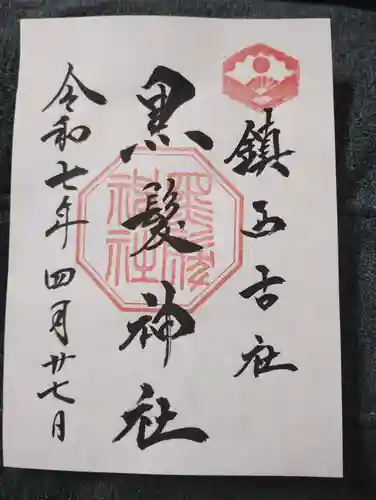 鎮西古社
黒髪神社
黒髪
神社
令和七年四月廿七日